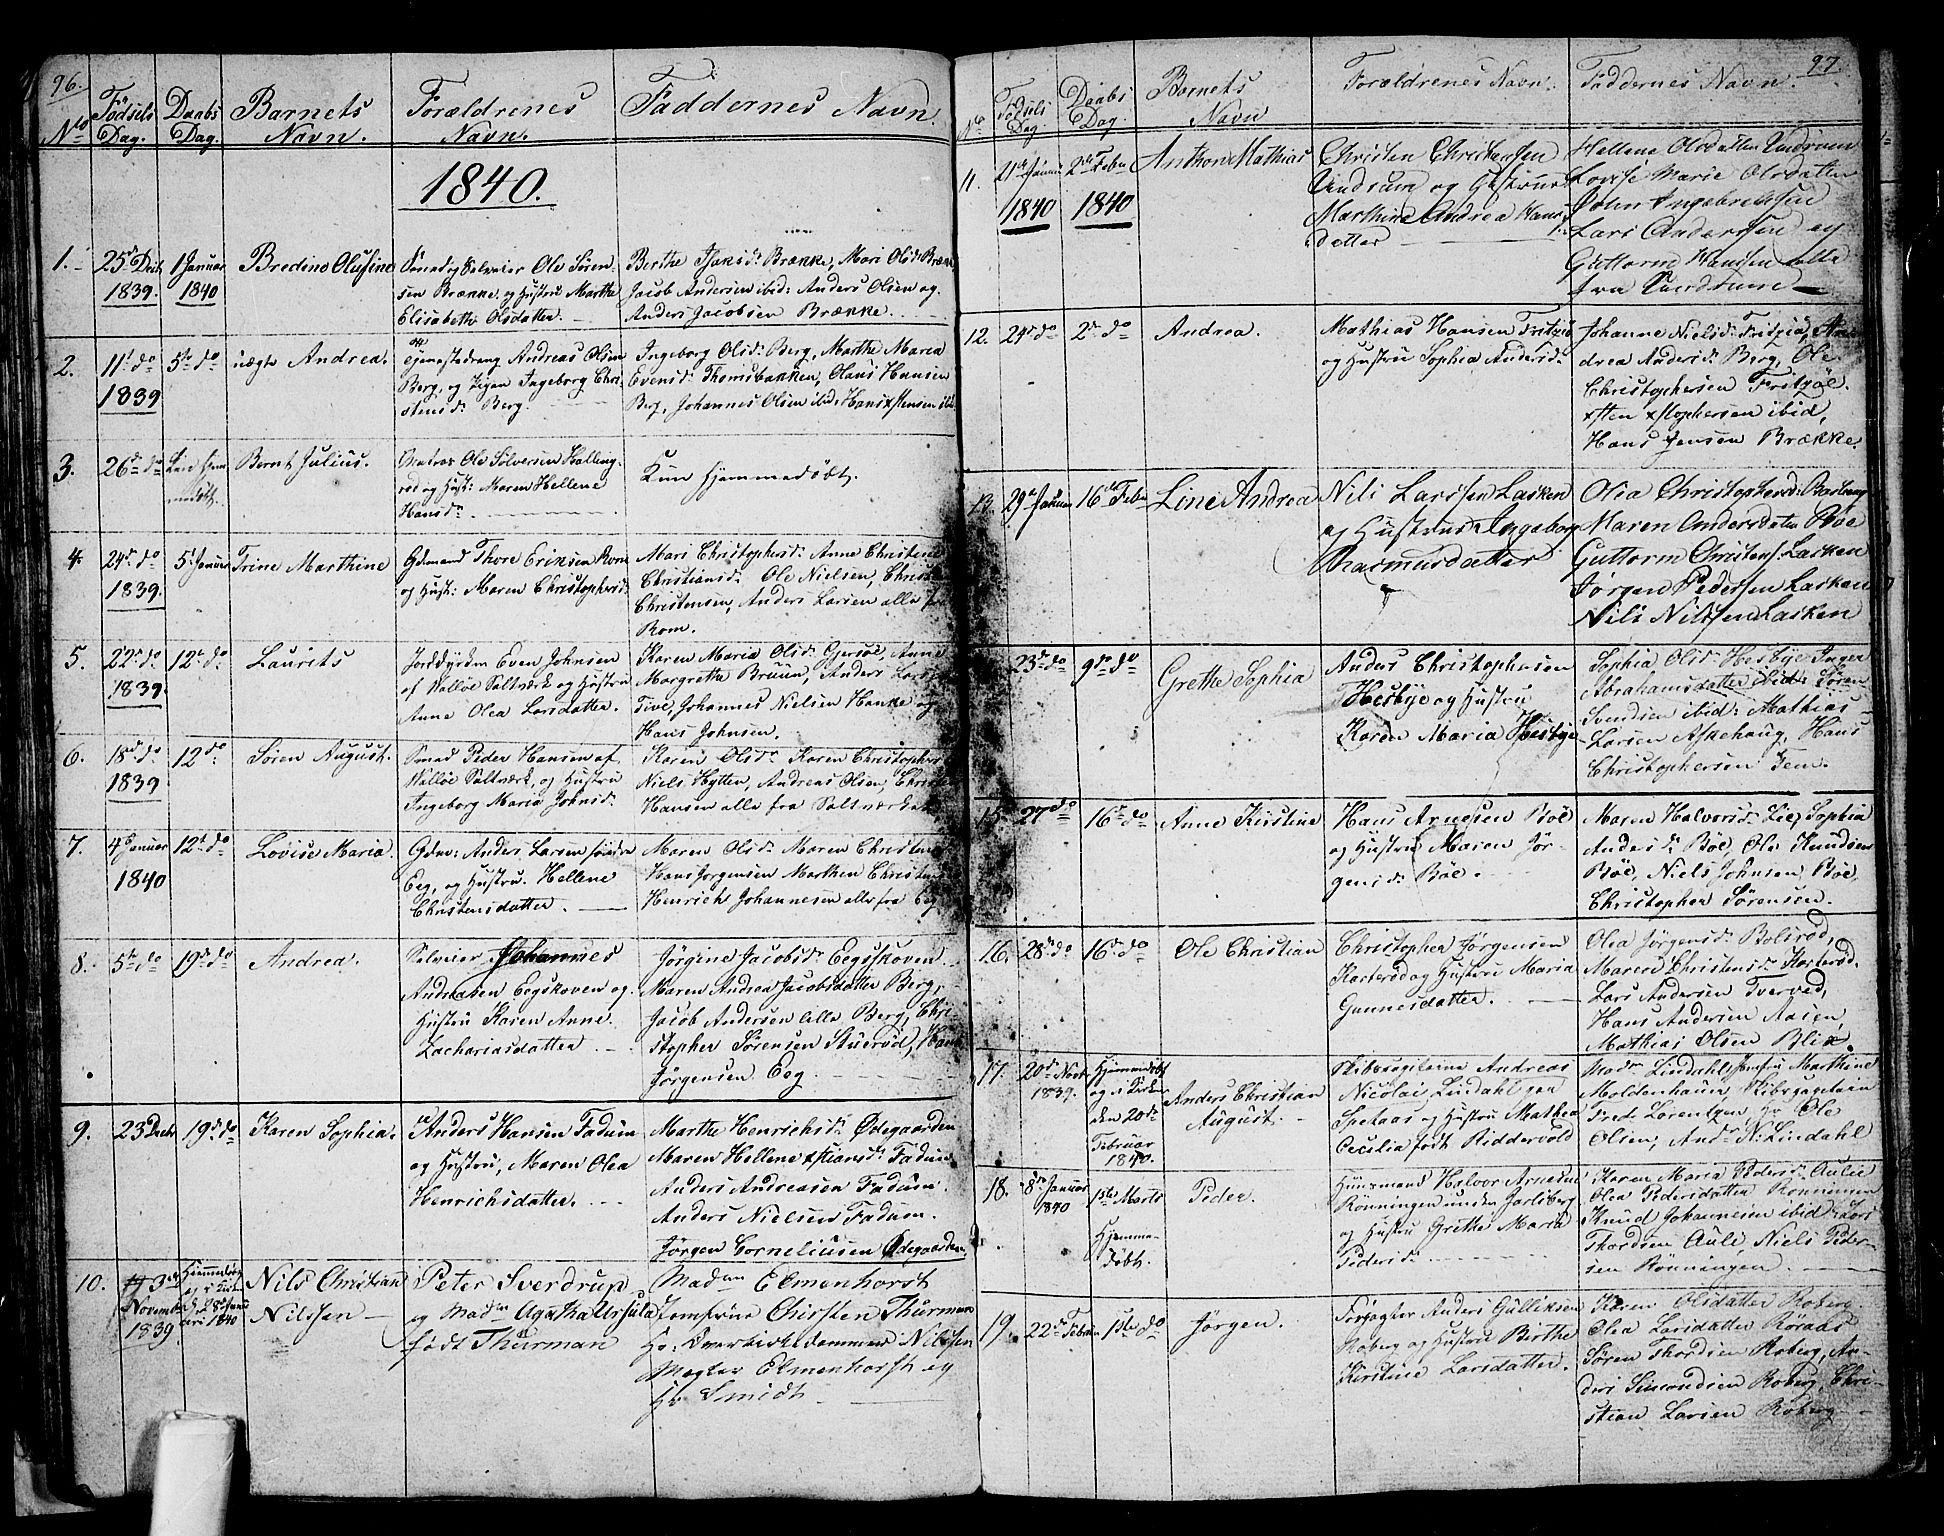 96.
No
Fødsels
Dag.
Daabs
Dag.
Barnets
Navn.
Forældrenes
Navn.
Faddernes Navn.
1840.
1.
25d Decb
1839.
1 Januar
1840
Bredine Olusine
Ole Søren-
sen Brække og Hustru Marthe
Elisabeth Olsdatter.
Berthe Isaksd: Brække, Mari Olsd: Brække
Jacob Andersen ibid: Anders Olsen og
Anders Jacobsen Brække.
2.
11t do
1839
5te do
uægte Andrea.
Tjenestedreng Andreas Olsen
Berg, og Pigen Ingeborg Chri-
stensd: Berg.
Ingeborg Olsd: Berg, Marthe Maria
Evensd: Thomsbakken, Olaus Hansen
Berg, Johannes Olsen ibid: Hans xstensen ibid
3.
26d do
Kun Hjem-
medøbt.
Bernt Julius.
Matros Ole Sølversen Halling-
rød og Hust: Maren Hellene
Hansd:
Kun Hjemmedøbt.
4.
24d do
1839.
5t Januar
Trine Marthine
Gdmand Thore Eriksen Rom
og Hust: Maren Christophersd:
Mari Christophersd: Anne Christine
Christiansd: Ole Nielsen, Christen
Christensen, Anders Larsen alle fra
Rom.
5.
22d do
1839
12t do
Laurits
Jorddyrker Even Johnsen
af Valløe Saltværk og Hustru
Anne Olea Larsdatter.
Karen Maria Olsd: Gjersøe, Anne
Margrethe Bruun, Anders Larsen
Tive, Johannes Nielsen Hanke og
Hans Johnsen.
6.
18d do
1839
12 do
Søren August.
Smed Peder Hansen af
Valløe Saltværk, og Hustru
Ingeborg Maria Johnsd:
Karen Olsd: Karen Christophersd
Niels Hytten, Andreas Olsen, Christen
Hansen alle fra Saltværket
7.
4de Januar
1840
12t do
Lovise Maria.
Gdm: Anders Larsen søndre
Eeg, og Hustru Hellene
Christensdatter.
Maren Olsd: Maren Christensd
Hans Jørgensen Morthen Christensen
Henrich Johannesen alle fra Eeg
8.
5te do
19d do
Andrea.
Selveier Johannes
Andreasen Eegskoven og
Hustru Karen Anne
Zachariasdatter.
Jørgine Jacobsd: Eegsskoven
Maren Andrea Jacobsdatter Berg,
Jacob Andersen lille Berg, Chri-
stopher Sørensen Stuerød, Hans
Jørgensen Eeg.
9.
23 Decbr
19d do
Karen Sophia.
Anders Hansen Fadum
og Hustru, Maren Olea
Henrichsdatter.
Marthe Henrichsd: Ødegaarden
Maren Hellene xstiansd: Fadum
Anders Andreasen Fadum.
Anders Nielsen Fadum.
Jørgen Corneliusen Ødegaarden.
10.
3die
November
1839
Hjemmedøbt
og i Kirken
d: 28d Janu
ari 1840
Nils Christian
Nilssen
Peter Sverdrup
og Madm Agatha Ursula
født Thurman
Madm Elmenhorst
Jomfrue Chirsten Thurman
Hr: Overkirkedommer Nilssen
Mægler Elmenhorst og
Hr Smidt
97.
No
Fødsels
Dag
Daabs
Dag.
Barnets
Navn
Forældrenes Navn.
Faddernes Navn.
11.
21de Januar
1840
2den Febr
1840
Anthon Mathias
Christen Christensen
Vindrum og Hustrue
Marthine Andrea Hans-
datter
Hellene Olsdatter Vindrum
Lovise Marie Olsdatter
John Ingebretsen
Lars Andersen og
Guttorm Hansen alle
fra Vindrum
12.
24d do
2d do
Andrea.
Mathias Hansen Fritzøe
og Hustru Sophia Andersd:
Johanne Nielsd: Fritzøe, An-
drea Andersd: Berg, Ole
Christophersen Fritzøe.
xsten xstophersen ibid,
Hans Jensen Brække.
13.
29de Januar
16de Febr
Line Andrea
Nils Larssen Lasken
og Hustrue Ingeborg
Rasmusdatter
Olea Christophersd:
Maren Andersdatter Bøe
Guttorm Christens: Lasken
Jørgen Pedersen Lasken
Nils Nilssen Lasken
23de do
9de do
Grethe Sophia
Anders Christophersen
Hesbye og Hustru
Karen Maria Hesbye
Sophia Olsd: Hesbye Inger
Abrahamsdatter ibid: Søren
Svendsen ibid: Mathias
Larsen Askehaug, Hans
Christophersen Fen.
15.
27de do
16d do
Anne Kirstine
Hans Arnesen Bøe
og Hustru Maren Jør-
gensd: Bøe.
Maren Halvorsd: Lie, Sophia
Andersd: Bøe, Ole Knudsen
Bøe, Niels Johnsen Bøe,
Christopher Sørensen.
16.
28de do
16d do
Ole Christian
Christopher Jørgensen
Kosterød og Hustru Maria
Gunnesdatter.
Olea Jørgensd: Bolsrød,
Maren Christensd: Kosterød.
Lars Andersen Tverved,
Hans Andersen Aasen,
Mathias Olsen Blix.
17.
20d Novbr
1839.
Hjemmedøbt
og i Kirken
den 20de
Februar
1840.
Anders Christian
August.
Skibscapitaine Andreas
Nicolai Lindahl
og Hustru Mathea
Cecilia født Riddervold
Madm Lindahl, Jomfru Marthine
Moldenhauer, Skibscapitain
Fred: Lorentzen, Hr Ole
Olsen, Andr N: Lindahl
18.
8de Januar
1840
1ste Marts
Hjemme-
døbt.
Peder.
Huusmand Halvor Arnesen
Rønningen under Jarlsberg
og Hustru Grethe Maria
Pedersd:
Karen Maria Pedersd: Aulie
Olea Pedersdatter Rønningen
Knud Johannesen ibid: Lars
Thordsen Auli, Niels Peder-
sen Rønningen.
19.
22de Febru
1ste do
Jørgen.
Forpagter Anders Gulliksen
Roberg og Hustru Berthe
Kirstine Larsdatter.
Karen Olsdatter Roberg.
Olea Larsdatter Roraas
Søren Thordsen Roberg, An-
ders Simondsen Roberg, Chri-
stian Larsen Roberg